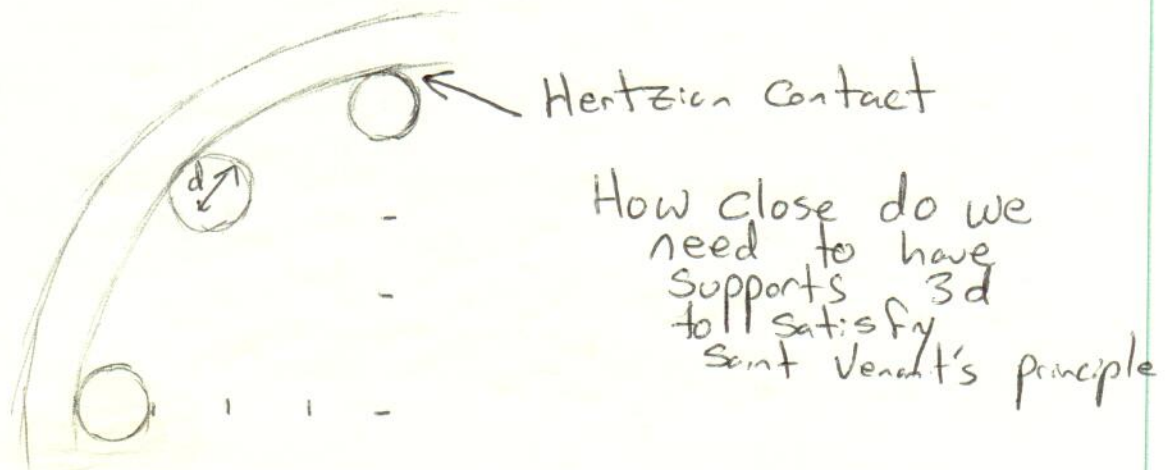 Hertzian Contact
d
How close do we
need to have
supports 3d
to satisfy
Saint Venant's principle